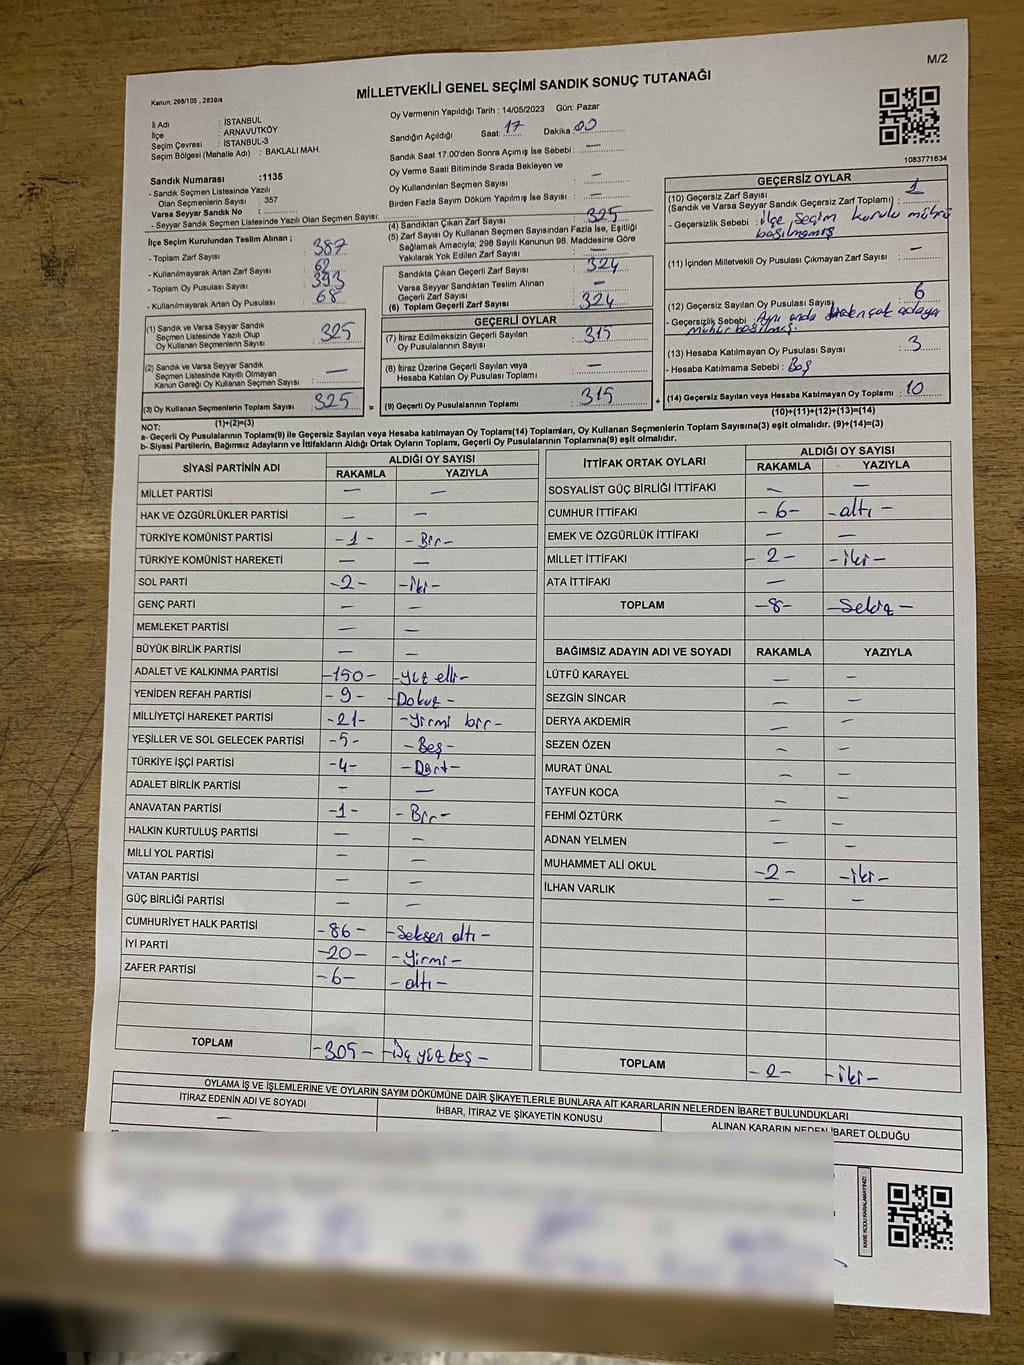 M/2
MİLLETVEKİLİ GENEL SEÇİMİ SANDIK SONUÇ TUTANAĞI
Kanun: 298/105 , 2839/4
İl Adı : İSTANBUL
İlçe : ARNAVUTKÖY
Seçim Çevresi : İSTANBUL-3
Seçim Bölgesi (Mahalle Adı) : BAKLALI MAH.
Oy Vermenin Yapıldığı Tarih : 14/05/2023 Gün: Pazar
Sandığın Açıldığı Saat: 17 Dakika: 00
Sandık Saat 17:00'den Sonra Açılmış İse Sebebi: —
Oy Verme Saati Bitiminde Sırada Bekleyen ve
Oy Kullandırılan Seçmen Sayısı : —
Birden Fazla Sayım Döküm Yapılmış İse Sayısı : —
1083771634
Sandık Numarası :1135
- Sandık Seçmen Listesinde Yazılı
Olan Seçmenlerin Sayısı : 357
Varsa Seyyar Sandık No :
- Seyyar Sandık Seçmen Listesinde Yazılı Olan Seçmen Sayısı:
İlçe Seçim Kurulundan Teslim Alınan ;
- Toplam Zarf Sayısı : 387
- Kullanılmayarak Artan Zarf Sayısı : 62
- Toplam Oy Pusulası Sayısı : 393
- Kullanılmayarak Artan Oy Pusulası : 68
(1) Sandık ve Varsa Seyyar Sandık
Seçmen Listesinde Yazılı Olup
Oy Kullanan Seçmenlerin Sayısı : 325
(2) Sandık ve Varsa Seyyar Sandık
Seçmen Listesinde Kayıtlı Olmayan
Kanun Gereği Oy Kullanan Seçmen Sayısı : —
(3) Oy Kullanan Seçmenlerin Toplam Sayısı : 325 =
(4) Sandıktan Çıkan Zarf Sayısı : 325
(5) Zarf Sayısı Oy Kullanan Seçmen Sayısından Fazla İse, Eşitliği
Sağlamak Amacıyla; 298 Sayılı Kanunun 98. Maddesine Göre
Yakılarak Yok Edilen Zarf Sayısı : —
Sandıkta Çıkan Geçerli Zarf Sayısı : 324
Varsa Seyyar Sandıktan Teslim Alınan
Geçerli Zarf Sayısı : —
(6) Toplam Geçerli Zarf Sayısı : 324
GEÇERLİ OYLAR
(7) İtiraz Edilmeksizin Geçerli Sayılan
Oy Pusulalarının Sayısı : 315
(8) İtiraz Üzerine Geçerli Sayılan veya
Hesaba Katılan Oy Pusulası Toplamı : —
(9) Geçerli Oy Pusulalarının Toplamı : 315 +
GEÇERSİZ OYLAR
(10) Geçersiz Zarf Sayısı 1
(Sandık ve Varsa Seyyar Sandık Geçersiz Zarf Toplamı) :
- Geçersizlik Sebebi : ilçe seçim kurulu mührü
basılmamış
(11) İçinden Milletvekili Oy Pusulası Çıkmayan Zarf Sayısı : —
(12) Geçersiz Sayılan Oy Pusulası Sayısı : 6
- Geçersizlik Sebebi : Aynı anda birden çok adaya
mühür basılmış.
(13) Hesaba Katılmayan Oy Pusulası Sayısı : 3
- Hesaba Katılmama Sebebi : Boş
(14) Geçersiz Sayılan veya Hesaba Katılmayan Oy Toplamı : 10
NOT: (1)+(2)=(3) (10)+(11)+(12)+(13)=(14)
a- Geçerli Oy Pusulalarının Toplamı(9) ile Geçersiz Sayılan veya Hesaba katılmayan Oy Toplamı(14) Toplamları, Oy Kullanan Seçmenlerin Toplam Sayısına(3) eşit olmalıdır. (9)+(14)=(3)
b- Siyasi Partilerin, Bağımsız Adayların ve İttifakların Aldığı Ortak Oyların Toplamı, Geçerli Oy Pusulalarının Toplamına(9) eşit olmalıdır.
SİYASİ PARTİNİN ADI ALDIĞI OY SAYISI
RAKAMLA YAZIYLA
MİLLET PARTİSİ — —
HAK VE ÖZGÜRLÜKLER PARTİSİ — —
TÜRKİYE KOMÜNİST PARTİSİ -1- -Bir-
TÜRKİYE KOMÜNİST HAREKETİ — —
SOL PARTİ -2- -iki-
GENÇ PARTİ — —
MEMLEKET PARTİSİ — —
BÜYÜK BİRLİK PARTİSİ — —
ADALET VE KALKINMA PARTİSİ -150- -yüz elli-
YENİDEN REFAH PARTİSİ -9- -Dokuz-
MİLLİYETÇİ HAREKET PARTİSİ -21- -yirmi bir-
YEŞİLLER VE SOL GELECEK PARTİSİ -5- -Beş-
TÜRKİYE İŞÇİ PARTİSİ -4- -Dört-
ADALET BİRLİK PARTİSİ — —
ANAVATAN PARTİSİ -1- -Bir-
HALKIN KURTULUŞ PARTİSİ — —
MİLLİ YOL PARTİSİ — —
VATAN PARTİSİ — —
GÜÇ BİRLİĞİ PARTİSİ — —
CUMHURİYET HALK PARTİSİ -86- -Seksen altı-
İYİ PARTİ -20- -yirmi-
ZAFER PARTİSİ -6- -altı-
TOPLAM -305- -üç yüz beş-
İTTİFAK ORTAK OYLARI ALDIĞI OY SAYISI
RAKAMLA YAZIYLA
SOSYALİST GÜÇ BİRLİĞİ İTTİFAKI — —
CUMHUR İTTİFAKI -6- -altı-
EMEK VE ÖZGÜRLÜK İTTİFAKI — —
MİLLET İTTİFAKI -2- -iki-
ATA İTTİFAKI —
TOPLAM -8- -Sekiz-
BAĞIMSIZ ADAYIN ADI VE SOYADI RAKAMLA YAZIYLA
LÜTFÜ KARAYEL — —
SEZGİN SİNCAR — —
DERYA AKDEMİR — —
SEZEN ÖZEN — —
MURAT ÜNAL — —
TAYFUN KOCA — —
FEHMİ ÖZTÜRK — —
ADNAN YELMEN — —
MUHAMMET ALİ OKUL -2- -iki-
İLHAN VARLIK — —
TOPLAM -2- -iki-
OYLAMA İŞ VE İŞLEMLERİNE VE OYLARIN SAYIM DÖKÜMÜNE DAİR ŞİKAYETLERLE BUNLARA AİT KARARLARIN NELERDEN İBARET BULUNDUKLARI
İTİRAZ EDENİN ADI VE SOYADI İHBAR, İTİRAZ VE ŞİKAYETİN KONUSU ALINAN KARARIN NEDEN İBARET OLDUĞU
—
KARE KODU KARALAMAYINIZ!